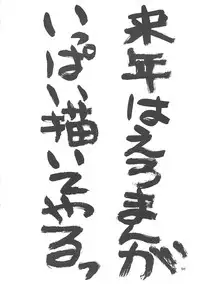 来年はえろまんが
いっぱい描いてやるっ